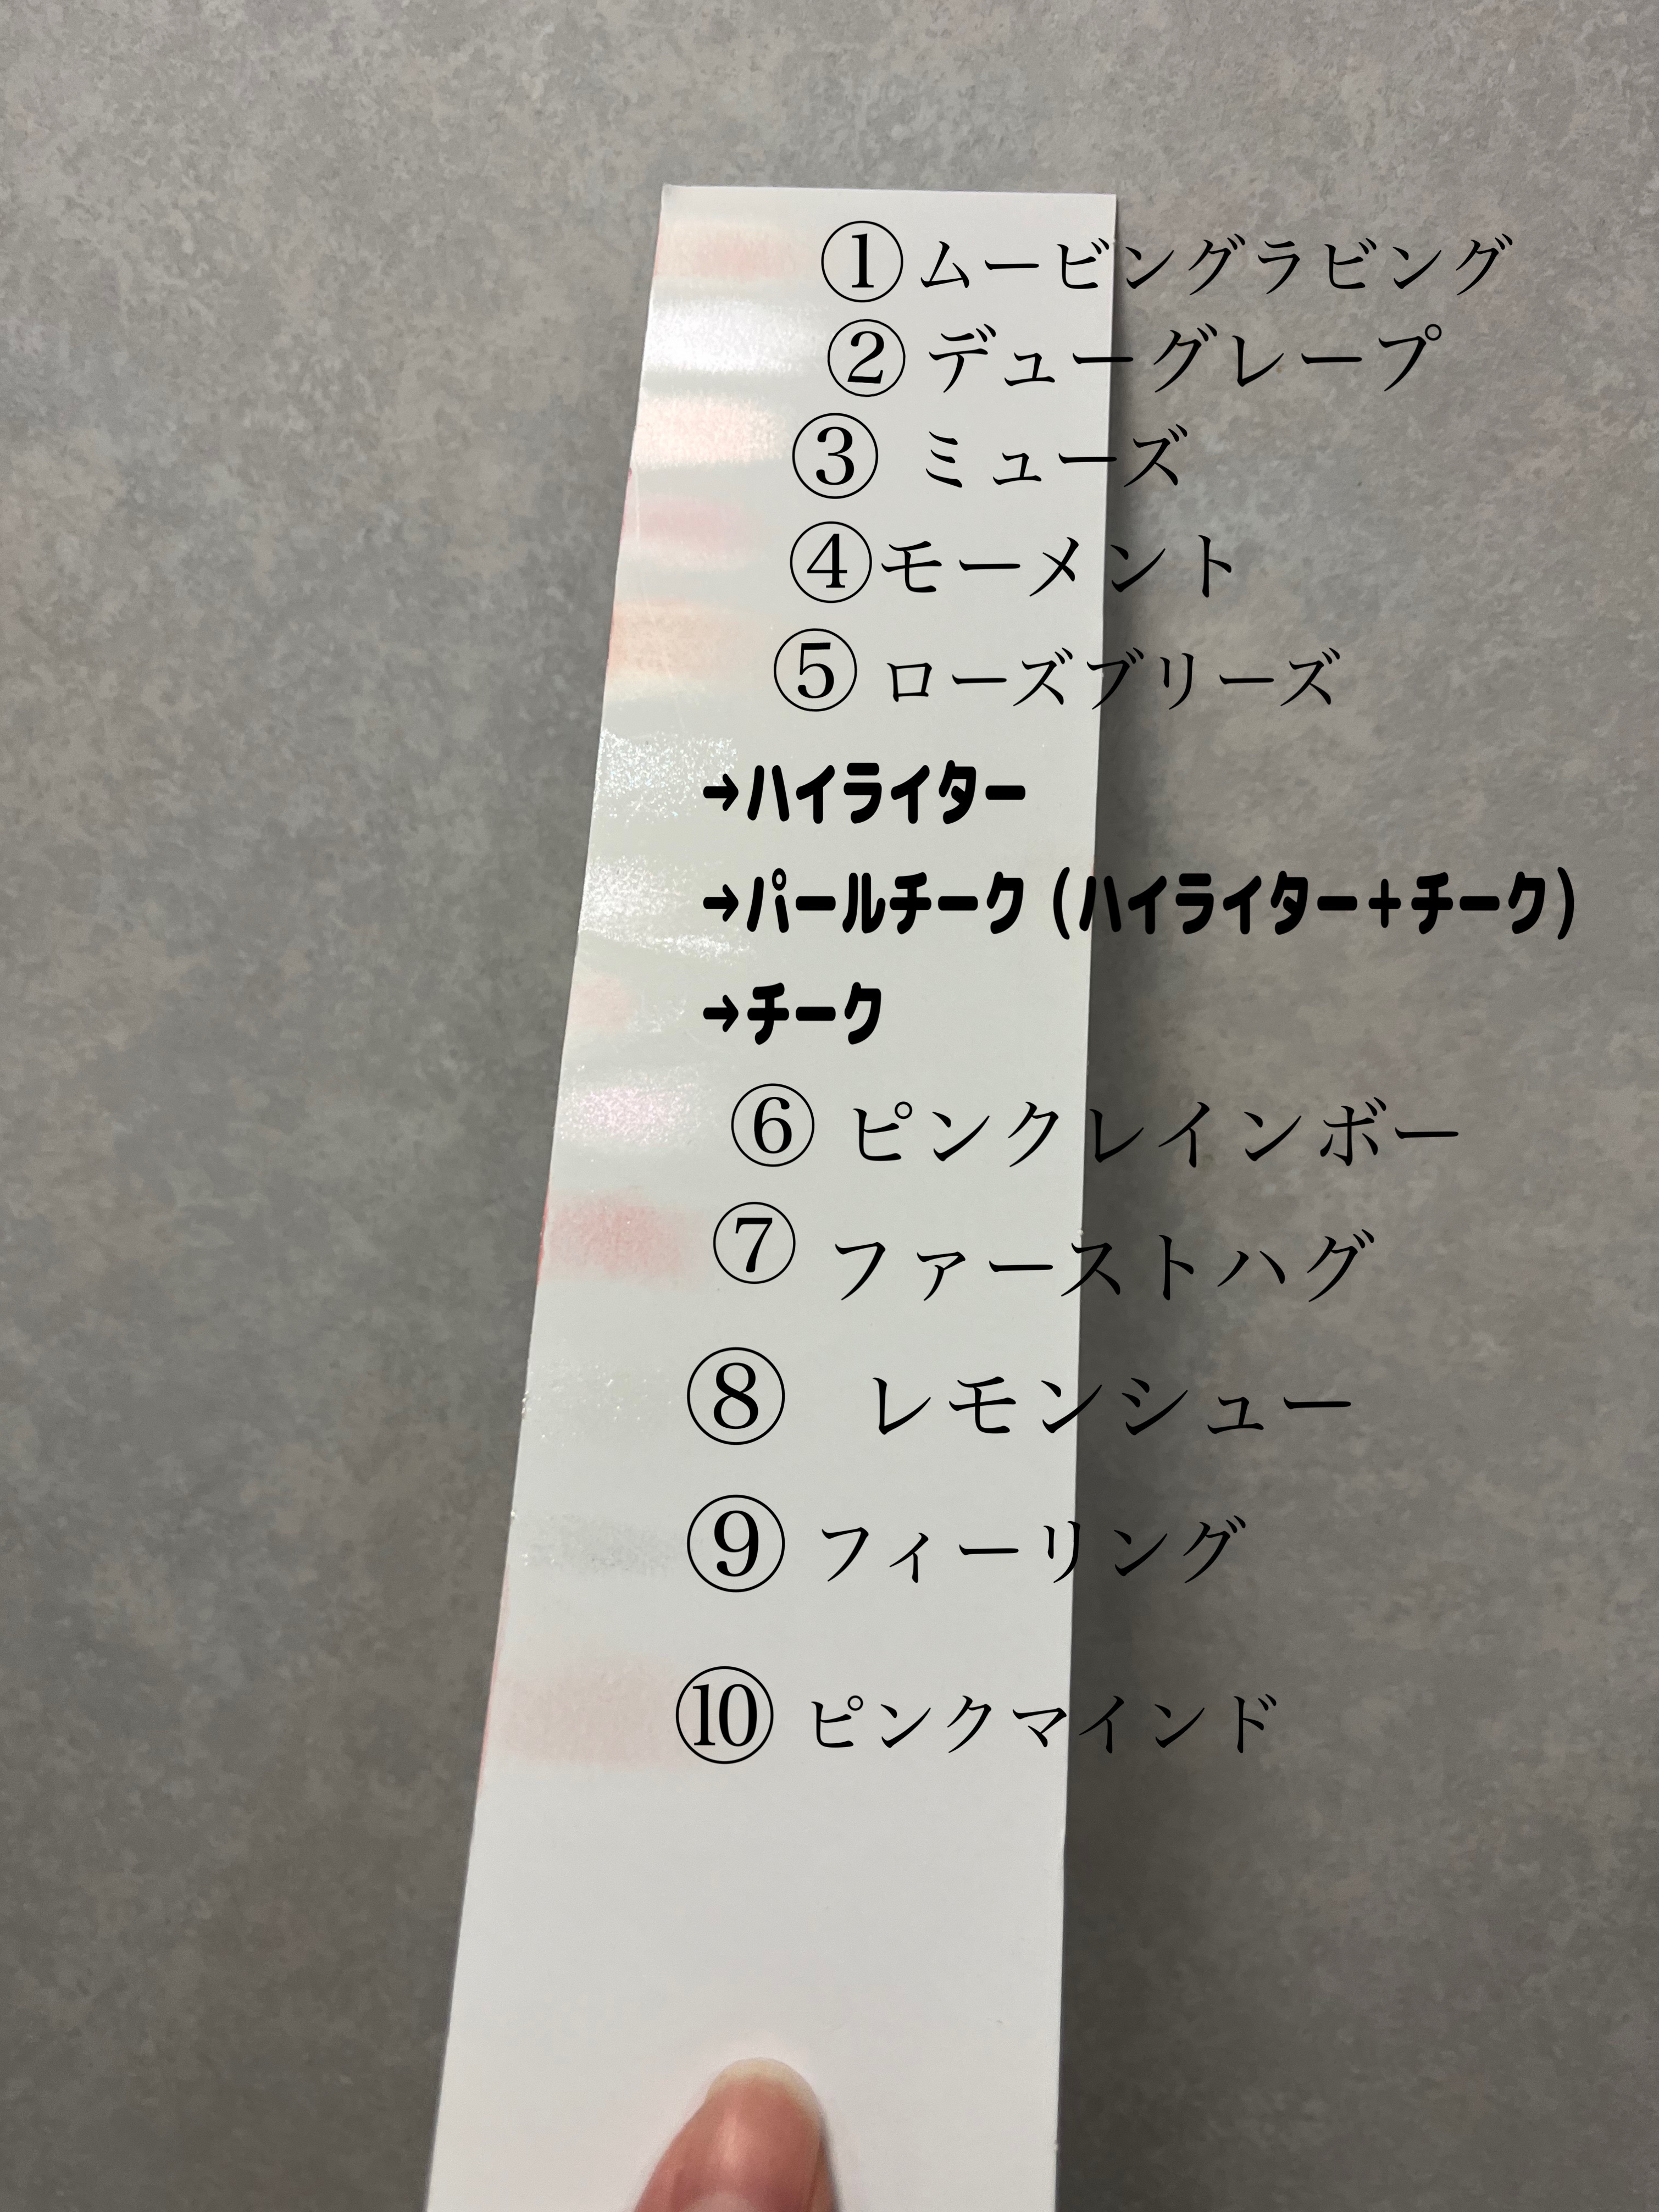 ①ムービングラビング
②デューグレープ
③ミューズ
④モーメント
⑤ローズブリーズ
→ハイライター
→パールチーク(ハイライター+チーク)
→チーク
⑥ピンクレインボー
⑦ファーストハグ
⑧ レモンシュー
⑨フィーリング
⑩ピンクマインド